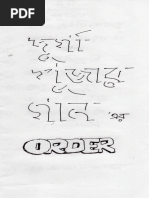 দুর্গা
পূজার
গান এর
ORDER